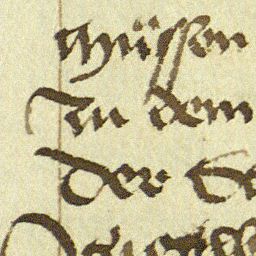 müssen
In dem
Der Se